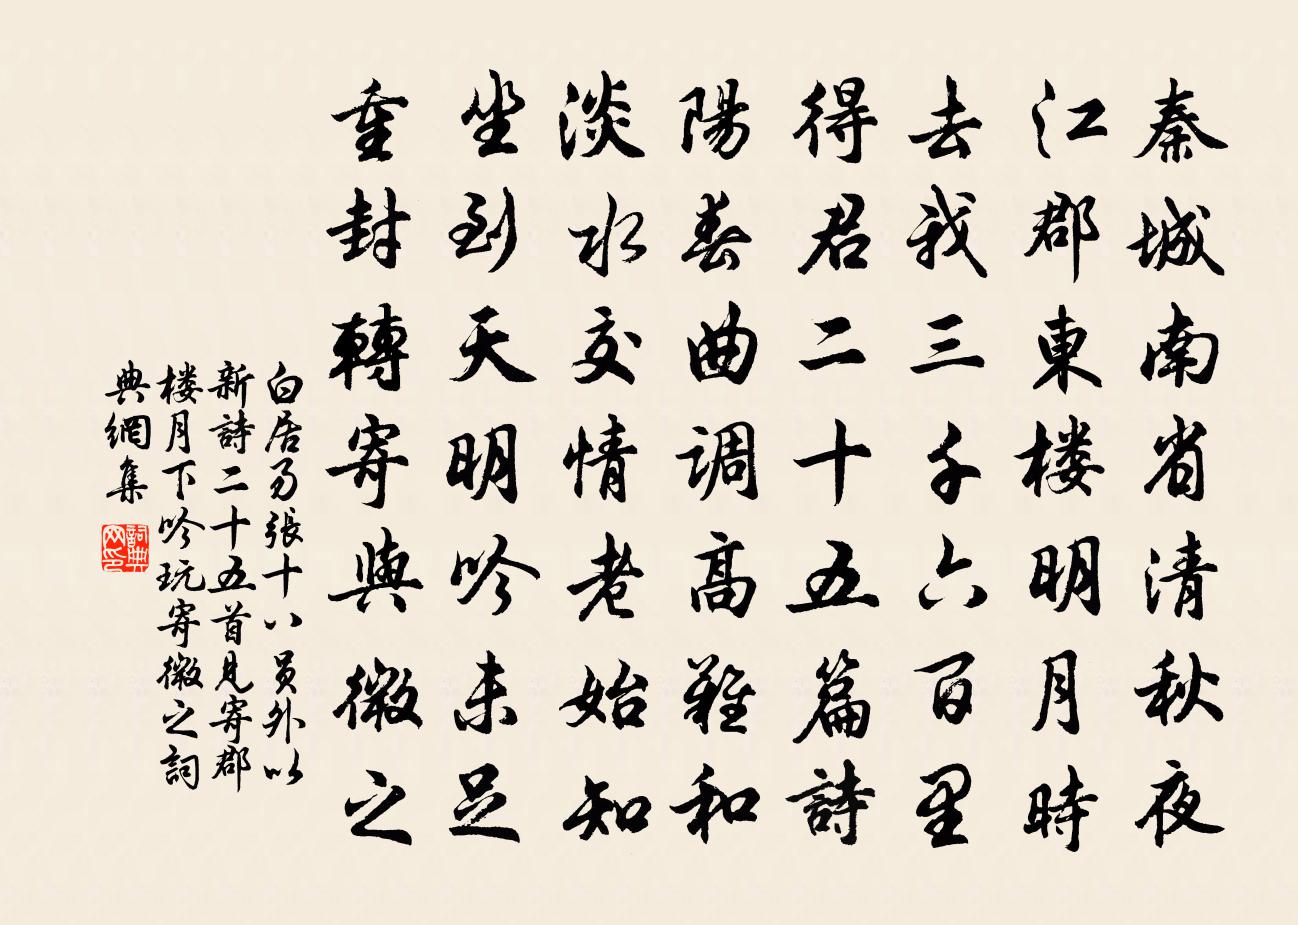 秦城南省清秋夜
江郡東楼明月時
去我三千六百里
得君二十五篇詩
陽春曲调高難和
淡水交情老始知
坐到天明吟未足
重封轉寄與微之
白居易張十八员外以
新詩二十五首見寄郡
楼月下吟玩寄微之詞
典網集
詞典
网印